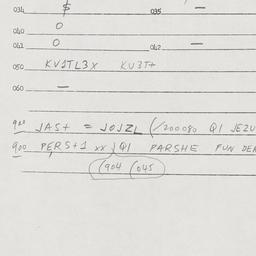 034 $ 035 —
040 O
041 O 042 —
050 KV1TL3X KU3T+
060 —
900 JAS+ = JOJZL (/200080 QI JEZU
900 PERS+1 xx } QI PARSHE FUN DEA
(904 (045